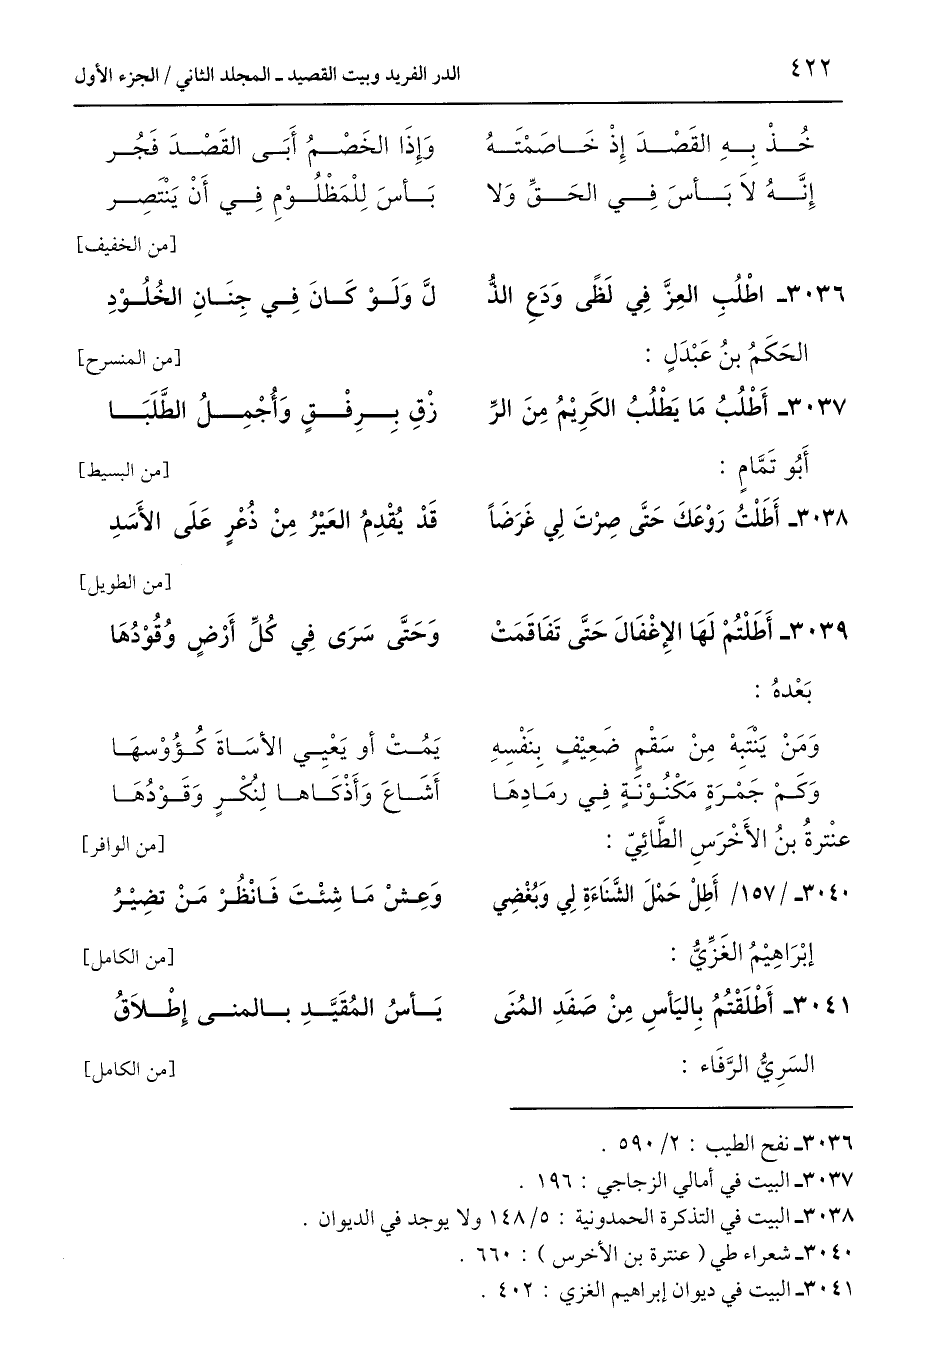 ٤٢٢ الدر الفريد وبيت القصيد ـ المجلد الثاني / الجزء الأول
خُـــذْ بِـــهِ القَصْـــدَ إِذْ خَـــاصَمْتَـــهُ وَإِذَا الخَصْـــمُ أَبَـــى القَصْـــدَ فَجُـــر
إِنَّـــهُ لاَ بَـــأسَ فِـــي الحَـــقِّ وَلا بَـــأسَ لِلْمَظْلُـــوْمِ فِـــي أَنْ يَنْتَصِـــر
[من الخفيف]
٣٠٣٦ـ اطْلُبِ العِزَّ فِي لَظًى وَدَعِ الذُّ لَّ وَلَـــوْ كَـــانَ فِـــي جِنَـــانِ الخُلُـــوْدِ
الحَكَمُ بنُ عَبْدَلٍ : [من المنسرح]
٣٠٣٧ـ أَطْلُبُ مَا يَطْلُبُ الكَرِيْمُ مِنَ الرِّ زْقِ بِـــرِفْـــقٍ وَأُجْمِـــلُ الطَّلَبَـــا
أَبُو تَمَّامٍ : [من البسيط]
٣٠٣٨ـ أَطَلْتُ رَوْعَكَ حَتَّى صِرْتَ لِي غَرَضَاً قَدْ يُقْدِمُ العَيْرُ مِنْ ذُعْرٍ عَلَى الأَسَدِ
[من الطويل]
٣٠٣٩ـ أَطَلْتُمْ لَهَا الإِغْفَالَ حَتَّى تَفَاقَمَتْ وَحَتَّى سَرَى فِي كُلِّ أَرْضٍ وُقُوْدُهَا
بَعْدهُ :
وَمَنْ يَنْتَبِهْ مِنْ سَقْمٍ ضَعِيْفٍ بِنَفْسِهِ يَمُـــتْ أو يَعْيِـــي الأسَـــاةَ كُـؤُوْسهَـــا
وَكَـــمْ جَمْـــرَةٍ مَكْنُـــوْنَـــةٍ فِـــي رمَـــادِهَـــا أَشَـــاعَ وَأَذْكَـــاهـــا لِنُكْـــرٍ وَقَـــوْدُهَـــا
عنْترةُ بنُ الأَخْرَسِ الطَّائِيّ : [من الوافر]
٣٠٤٠ـ /١٥٧/ أَطِلْ حَمْلَ الشَّنَاءَةِ لِي وَبُغْضِي وَعِـــشْ مَـــا شِئْـــتَ فَـــانْظُـــرْ مَـــنْ تضِيْـــرُ
إبْرَاهِيْمُ الغَزِّيُّ : [من الكامل]
٣٠٤١ـ أَطْلَقْتُمُ بِاليَأسِ مِنْ صَفَدِ المُنَى يَـــأسُ المُقَيَّـــدِ بـــالمنـــى إِطْـــلاَقُ
السَرِيُّ الرَّفَاء : [من الكامل]
٣٠٣٦ـ نفح الطيب : ٢/ ٥٩٠ .
٣٠٣٧ـ البيت في أمالي الزجاجي : ١٩٦ .
٣٠٣٨ـ البيت في التذكرة الحمدونية : ٥/ ١٤٨ ولا يوجد في الديوان .
٣٠٤٠ـ شعراء طي ( عنترة بن الأخرس ) : ٦٦٠ .
٣٠٤١ـ البيت في ديوان إبراهيم الغزي : ٤٠٢ .